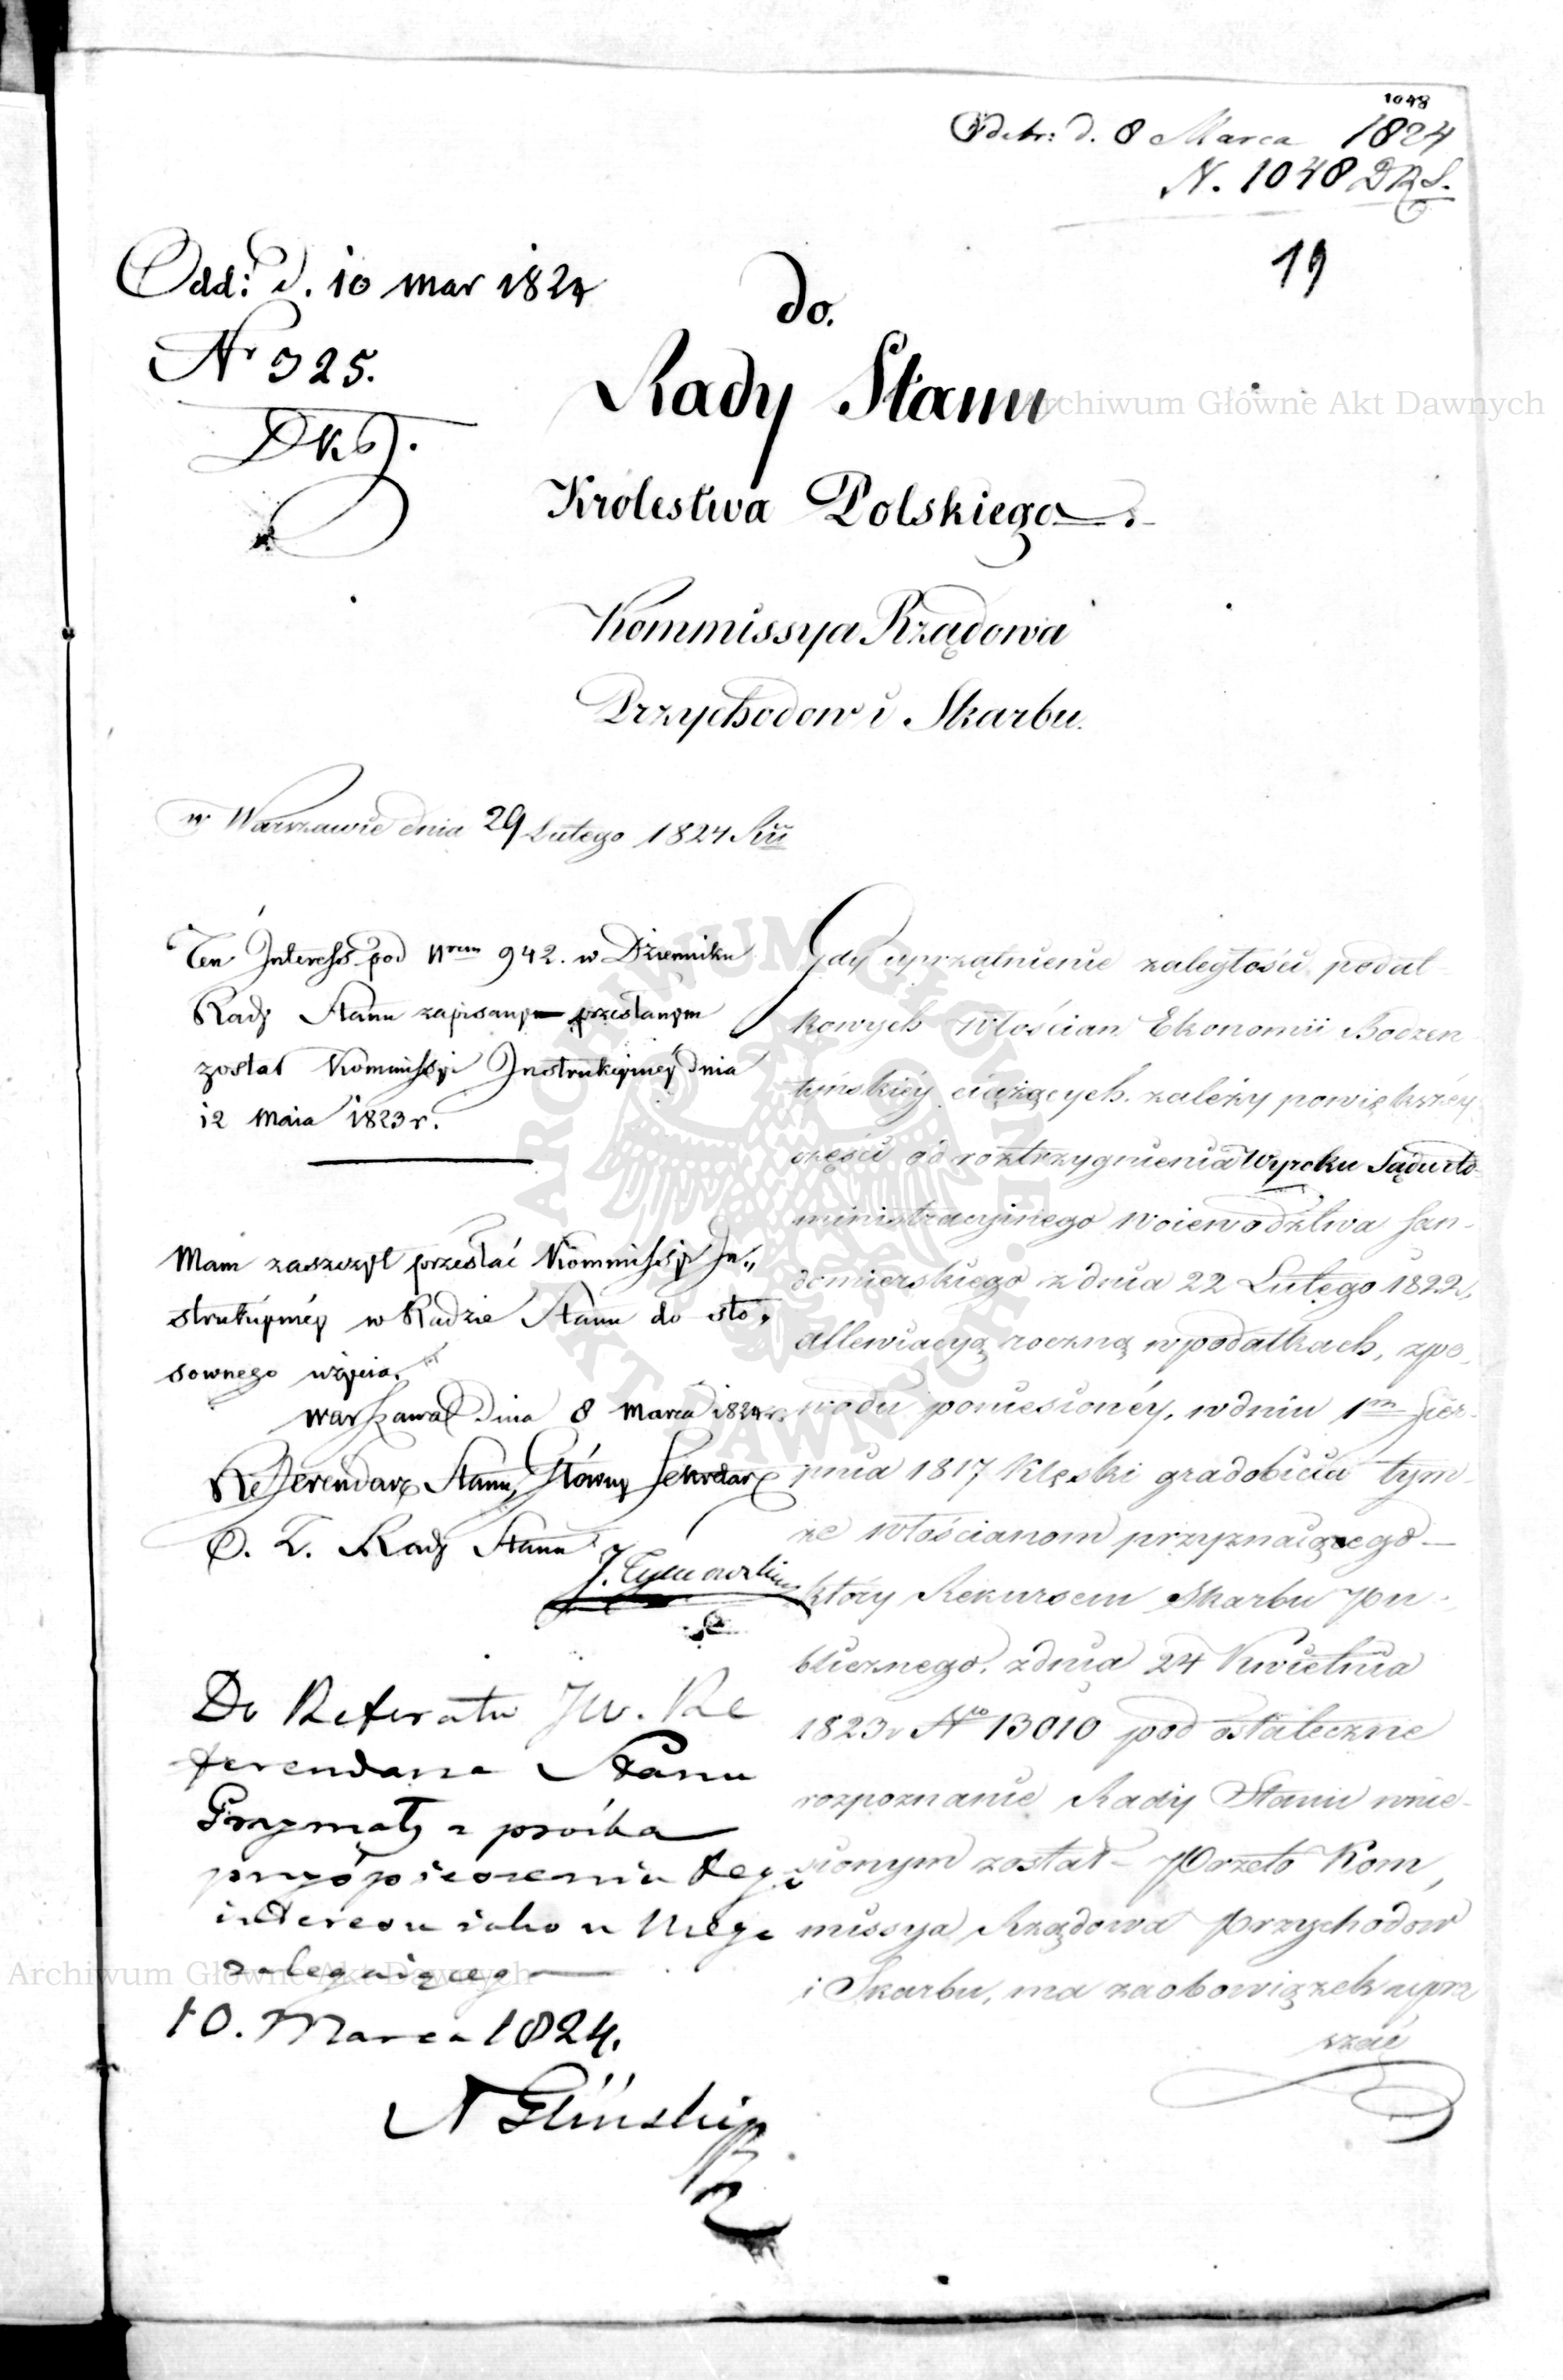 1048
Odebr: d. 8 Marca 1824
N. 1048 DRS.
19
Odd: d. 10 mar 1824
Nr 325.
do.
Rady Stanu
Krolestwa Polskiego.
Kommissya Rządowa
Przychodow i Skarbu.
w Warszawie dnia 29 Lutego 1824 Ru
Ten Interess pod Nrem 942. w Dzienniku
Rady Stanu zapisany przesłanym
został Kommissyi Instrukcyiney dnia
12 Maia 1823 r.
Mam zaszczyt przesłać Kommissyi In„
strukcyiney w Radzie Stanu do sto„
sownego użycia.
Warszawa dnia 8 Marca 1824 r.
Referendarz Stanu, Główny Sekretarz
Rady Stanu
J. Tymowski
Do Referatu JW. Re
ferendarza Stanu
Grzymały z prośba
przyśpieszenia tego
interesu iako u Niego
zalegaiącego
10. Marca 1824.
N Gliński
Gdy uprzątnienie zaległości podat
kowych Włościan Ekonomii Bodzen
tyńskiey ciążących, zależy powiększey
części od roztrzygnienia Wyroku Sądu Ad-
ministracyinego Woiewodztwa San-
domierskiego z dnia 22 Lutego 1822 r,
allewiacyą roczną w podatkach, zpo-
wodu poniesioney, w dniu 1m Sier-
pnia 1817 Klęski gradobicia tym-
że Włościanom przyznaiącego —
który Rekursem Skarbu Pu-
blicznego, z dnia 24 Kwietnia
1823 r No 13010 pod ostateczne
rozpoznanie Rady Stanu wnie-
sionym został – Przeto Kom,
missya Rządowa Przychodow
i Skarbu, ma za obowiązek upra
szać
Archiwum Główne Akt Dawnych
ARCHIWUM GŁÓWNE AKT DAWNYCH
Archiwum Główne Akt Dawnych